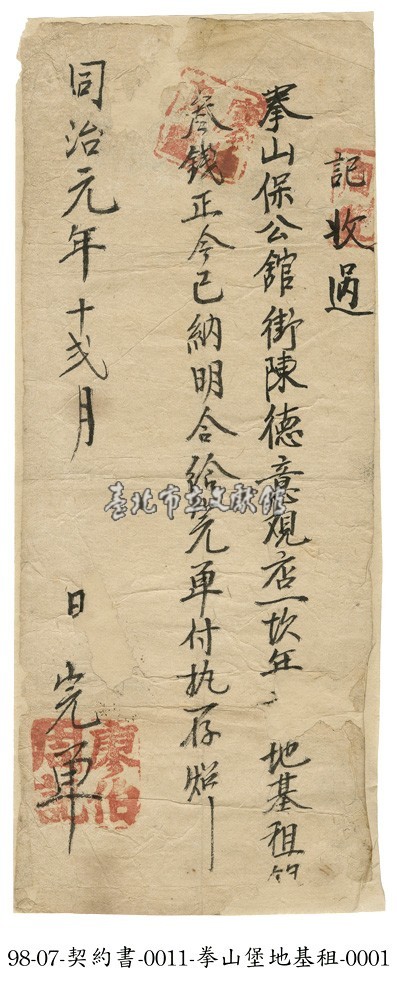 記收過
拳山保公館街陳德意观店一坎年 地基租銀
叁錢正今已納明合給完單付執存炤
同治元年十弍月 日 完单
廖伯周記
臺北市立文獻館
98-07-契約書-0011-拳山堡地基租-0001